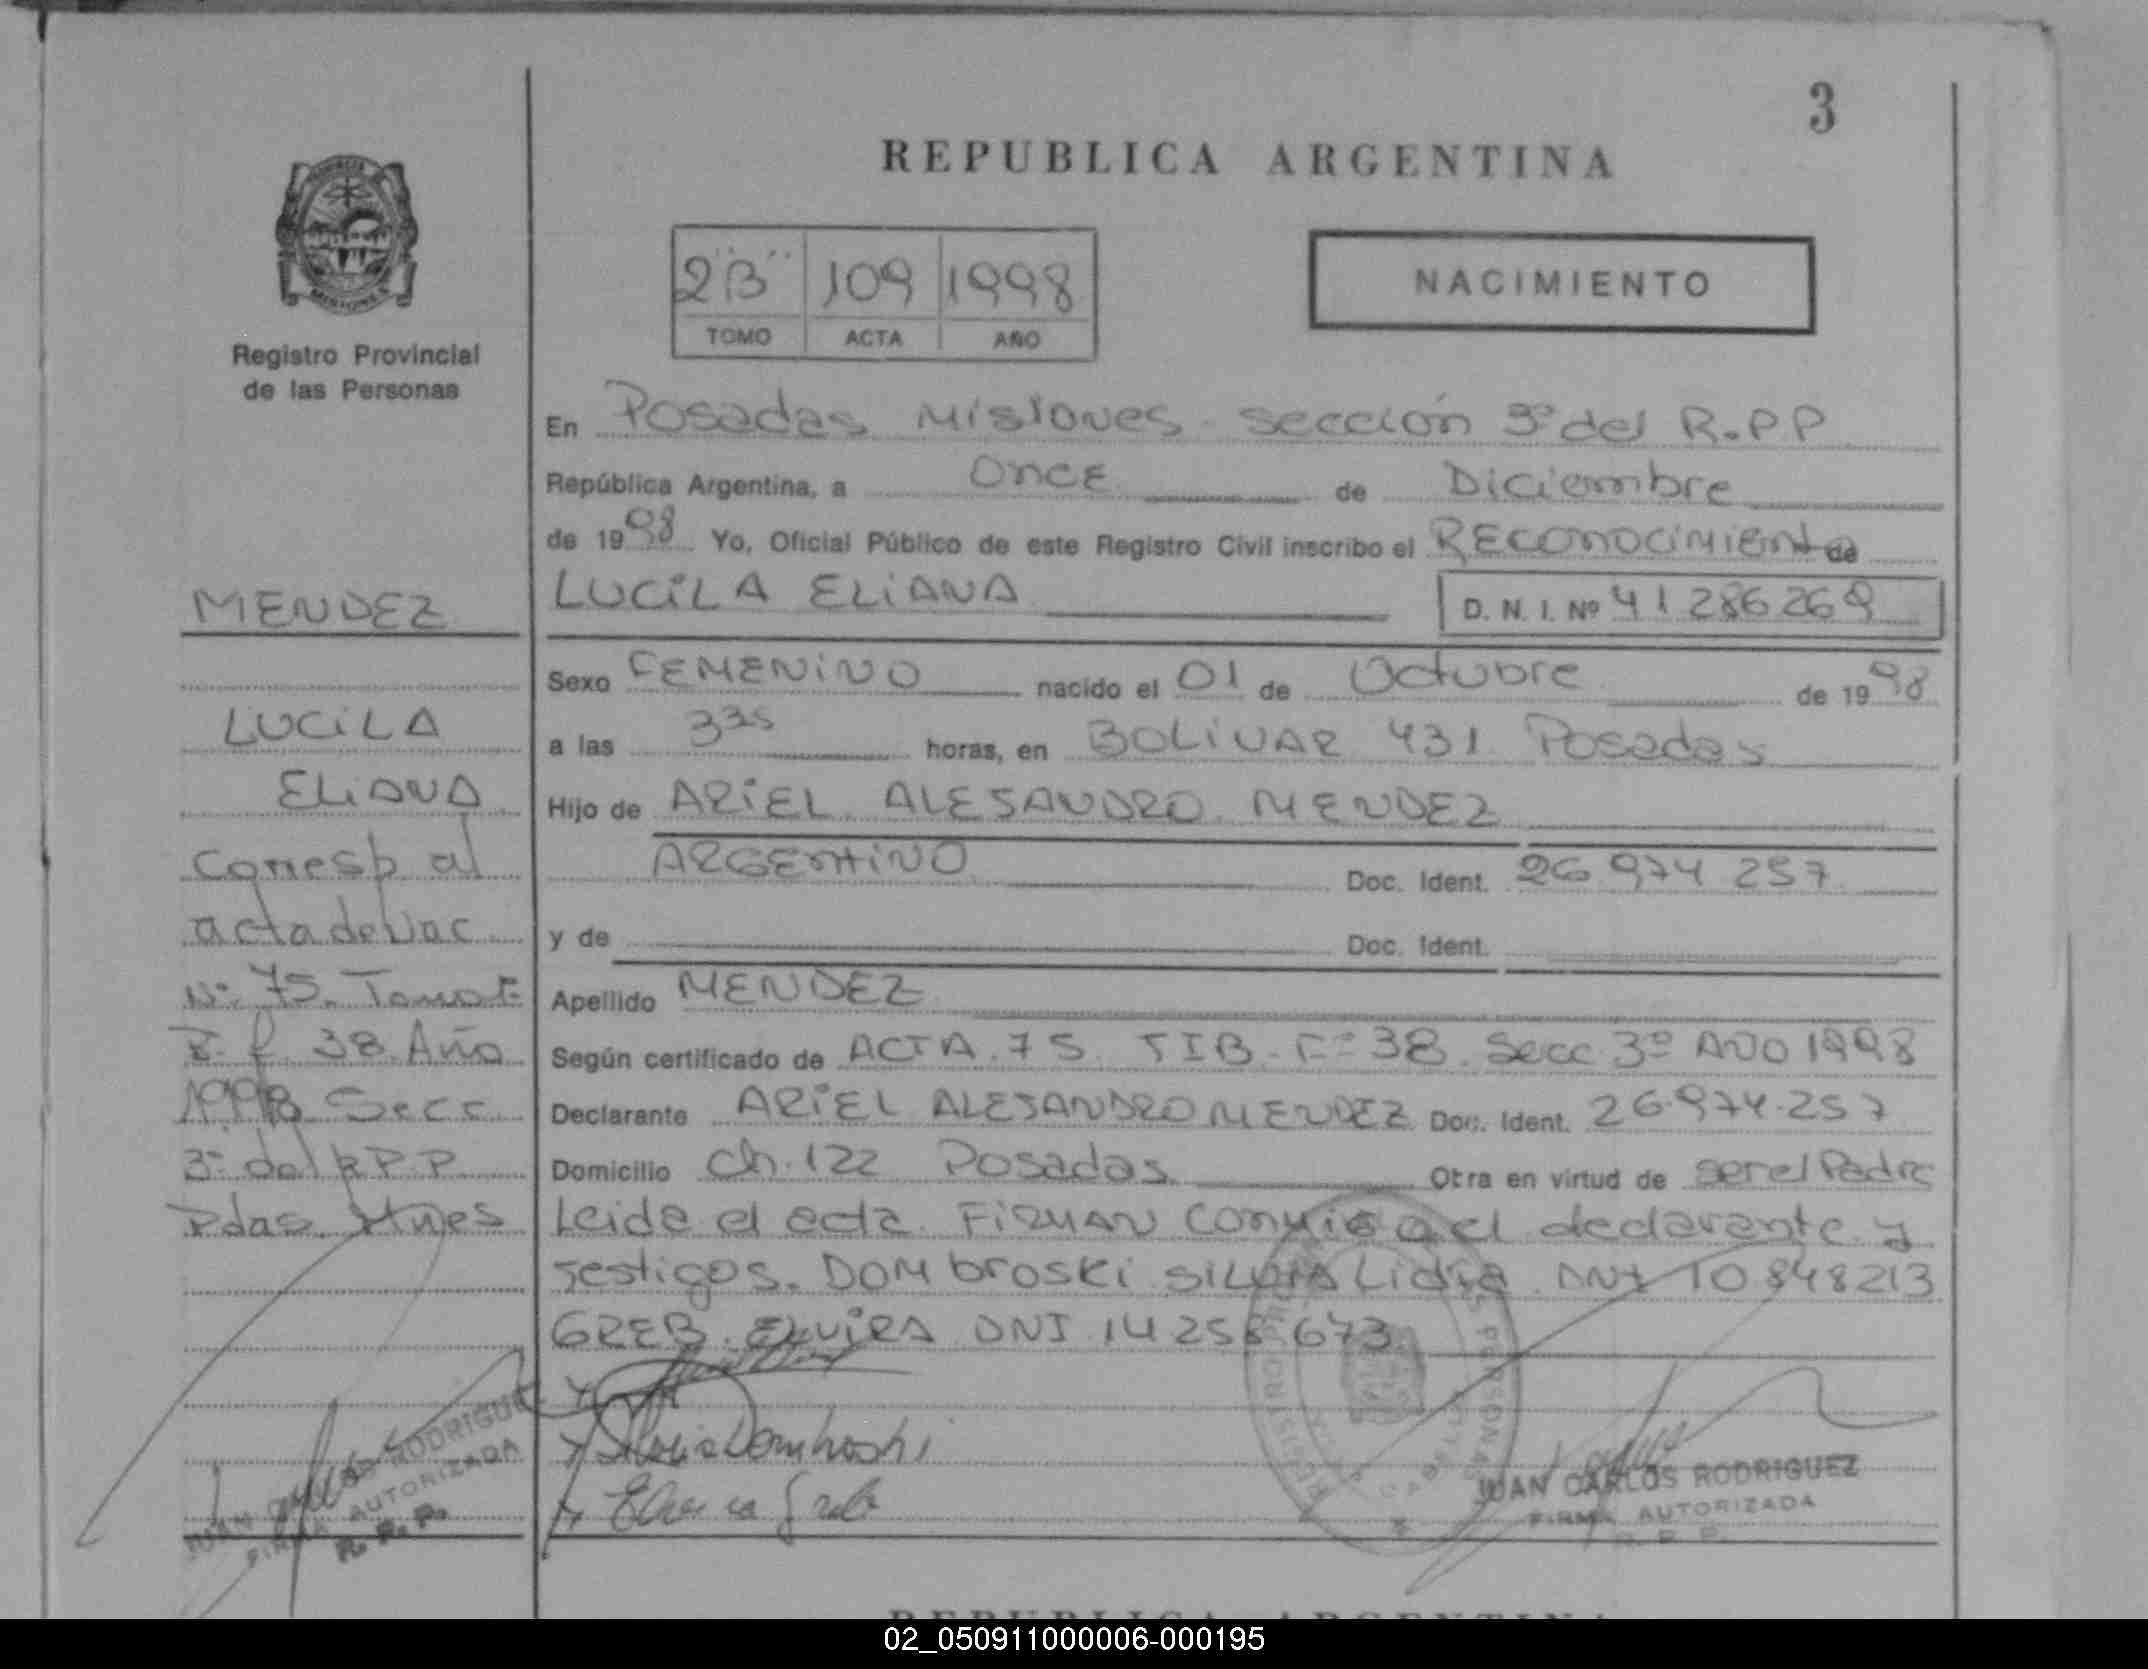 3
REPUBLICA ARGENTINA
2"B" 109 1998
TOMO ACTA AÑO
NACIMIENTO
MISIONES
Registro Provincial
de las Personas
En Posadas Misiones Sección 3º del R.P.P
República Argentina, a Once de Diciembre
de 1998 Yo, Oficial Público de este Registro Civil inscribo el RECONOCIMIENTO de
LUCILA ELIANA D. N. I. Nº 41286269
Sexo FEMENINO nacido el 01 de Octubre de 1998
a las 335 horas, en BOLIVAR 431 Posadas
Hijo de ARIEL ALESANDRO MENDEZ
ARGENTINO Doc. Ident. 26 974 257
y de Doc. Ident.
Apellido MENDEZ
Según certificado de ACTA 75 TIB. Fº 38. Secc 3º AÑO 1998
Declarante ARIEL ALESANDRO MENDEZ Doc. Ident. 26.974.257
Domicilio Ch. 122 Posadas Otra en virtud de ser el Padre
Leida el acta FIRMAN Conmigo el declarante y
testigos. DOMbroski SILVIA Lidia DNI 10848213
GREB. ELVIRA DNI 14 258 673
MENDEZ
LUCILA
ELIANA
Corresp. al
acta de Nac
Nº 75. Tomo I
B. f 38. Año
1998 Secc
3º del R.P.P
Pdas. Mnes
JUAN CARLOS RODRIGUEZ
FIRMA AUTORIZADA
R. P. P.
Silvia Dombroski
Elvira Greb
REGISTRO PERSONAS
JUAN CARLOS RODRIGUEZ
FIRMA AUTORIZADA
R. P. P.
REPUBLICA ARGENTINA
02_050911000006-000195